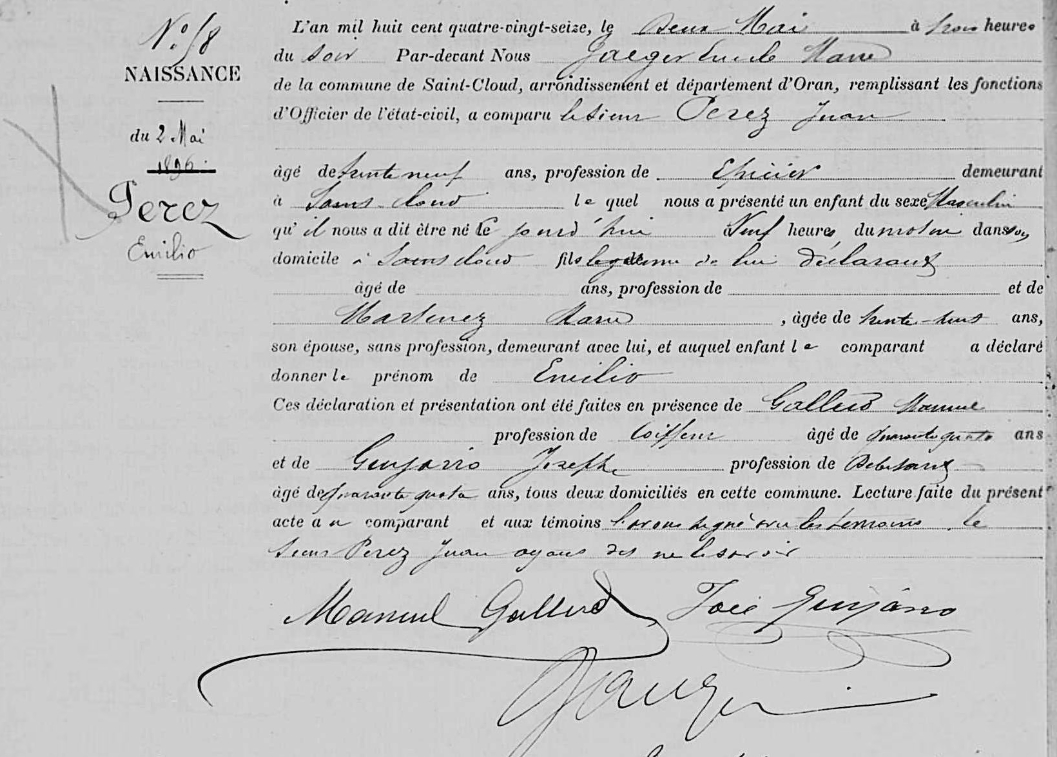 N° 58
NAISSANCE
du 2 Mai
1896.
Perez
Emilio
L'an mil huit cent quatre-vingt-seize, le deux Mai à trois heures
du soir Par-devant Nous Jaeger Maire
de la commune de Saint-Cloud, arrondissement et département d'Oran, remplissant les fonctions
d'Officier de l'état-civil, a comparu le sieur Perez Juan
âgé de trente neuf ans, profession de Epicier demeurant
à Saint-Cloud le quel nous a présenté un enfant du sexe Masculin
qu'il nous a dit être né ce jourd'hui à Neuf heures du matin dans son
domicile à Saint Cloud fils légitime de lui déclarant
âgé de ans, profession de et de
Martinez Marie, âgée de trente-huit ans,
son épouse, sans profession, demeurant avec lui, et auquel enfant le comparant a déclaré
donner le prénom de Emilio
Ces déclaration et présentation ont été faites en présence de Gallud Manuel
profession de Coiffeur âgé de quarante quatre ans
et de Guijarro Joseph profession de Débitant
âgé de quarante quatre ans, tous deux domiciliés en cette commune. Lecture faite du présent
acte au comparant et aux témoins l'avons signé avec les témoins le
sieur Perez Juan ayant dit ne le savoir
Manuel Gallud José Guijarro
Jaeger